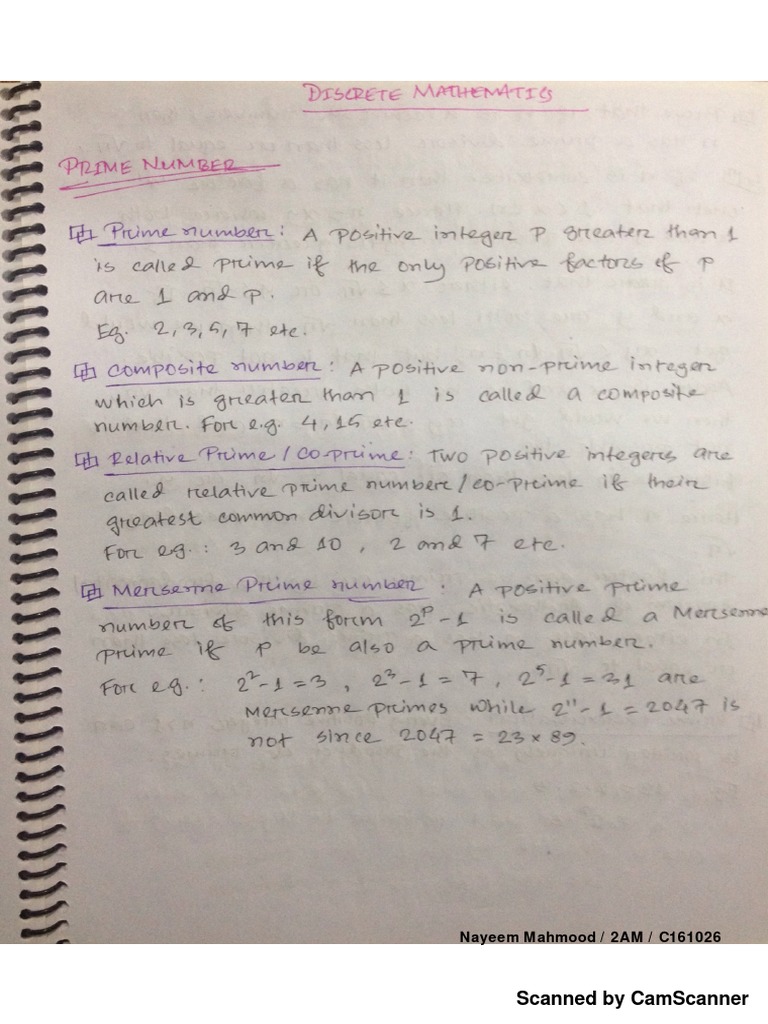 DISCRETE MATHEMATICS
PRIME NUMBER
Prime number: A positive integer P greater than 1
is called prime if the only positive factors of p
are 1 and p.
Eg. 2, 3, 5, 7 etc.
Composite number: A positive non-prime integer
which is greater than 1 is called a composite
number. For e.g. 4, 15 etc.
Relative Prime / Co-prime: Two positive integers are
called relative prime number / co-prime if their
greatest common divisor is 1.
For eg.: 3 and 10, 2 and 7 etc.
Mersenne Prime number: A positive prime
number of this form 2^p - 1 is called a Mersenne
prime if P be also a prime number.
For e.g.: 2² - 1 = 3, 2³ - 1 = 7, 2⁵ - 1 = 31 are
Mersenne primes while 2¹¹ - 1 = 2047 is
not since 2047 = 23 × 89.
Nayeem Mahmood / 2AM / C161026
Scanned by CamScanner